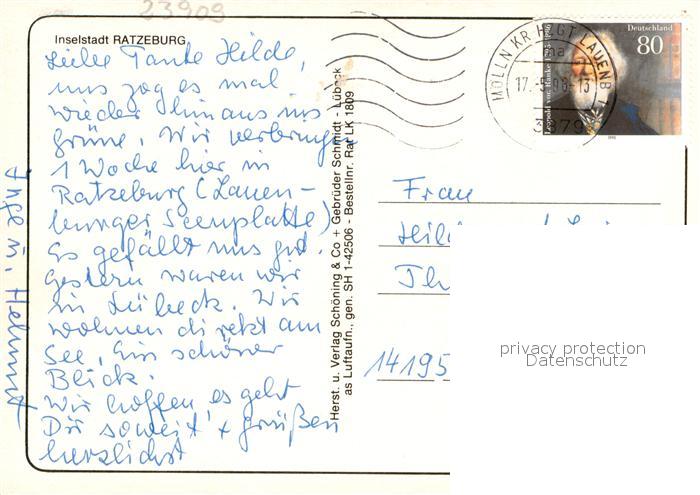 23909
Inselstadt RATZEBURG
Liebe Tante Hilde,
uns zog es mal
wieder hinaus ins
Grüne. Wir verbringen
1 Woche hier in
Ratzeburg (Lauen-
burger Seenplatte)
Es gefällt uns gut.
Gestern waren wir
in Lübeck. Wir
wohnen direkt am
See, ein schöner
Blick.
Wir hoffen es geht
Dir soweit + grüßen
herzlichst
Inge u. Helmut
Herst. u. Verlag Schöning & Co + Gebrüder Schmidt . Lübeck
as Luftaufn., gen. SH 1-42506 - Bestellnr. Rat LK 1809
MÖLLN KR HZGT LAUENB 1
17.-5.
Deutschland
80
Leopold von Ranke
Frau
14195
privacy protection
Datenschutz